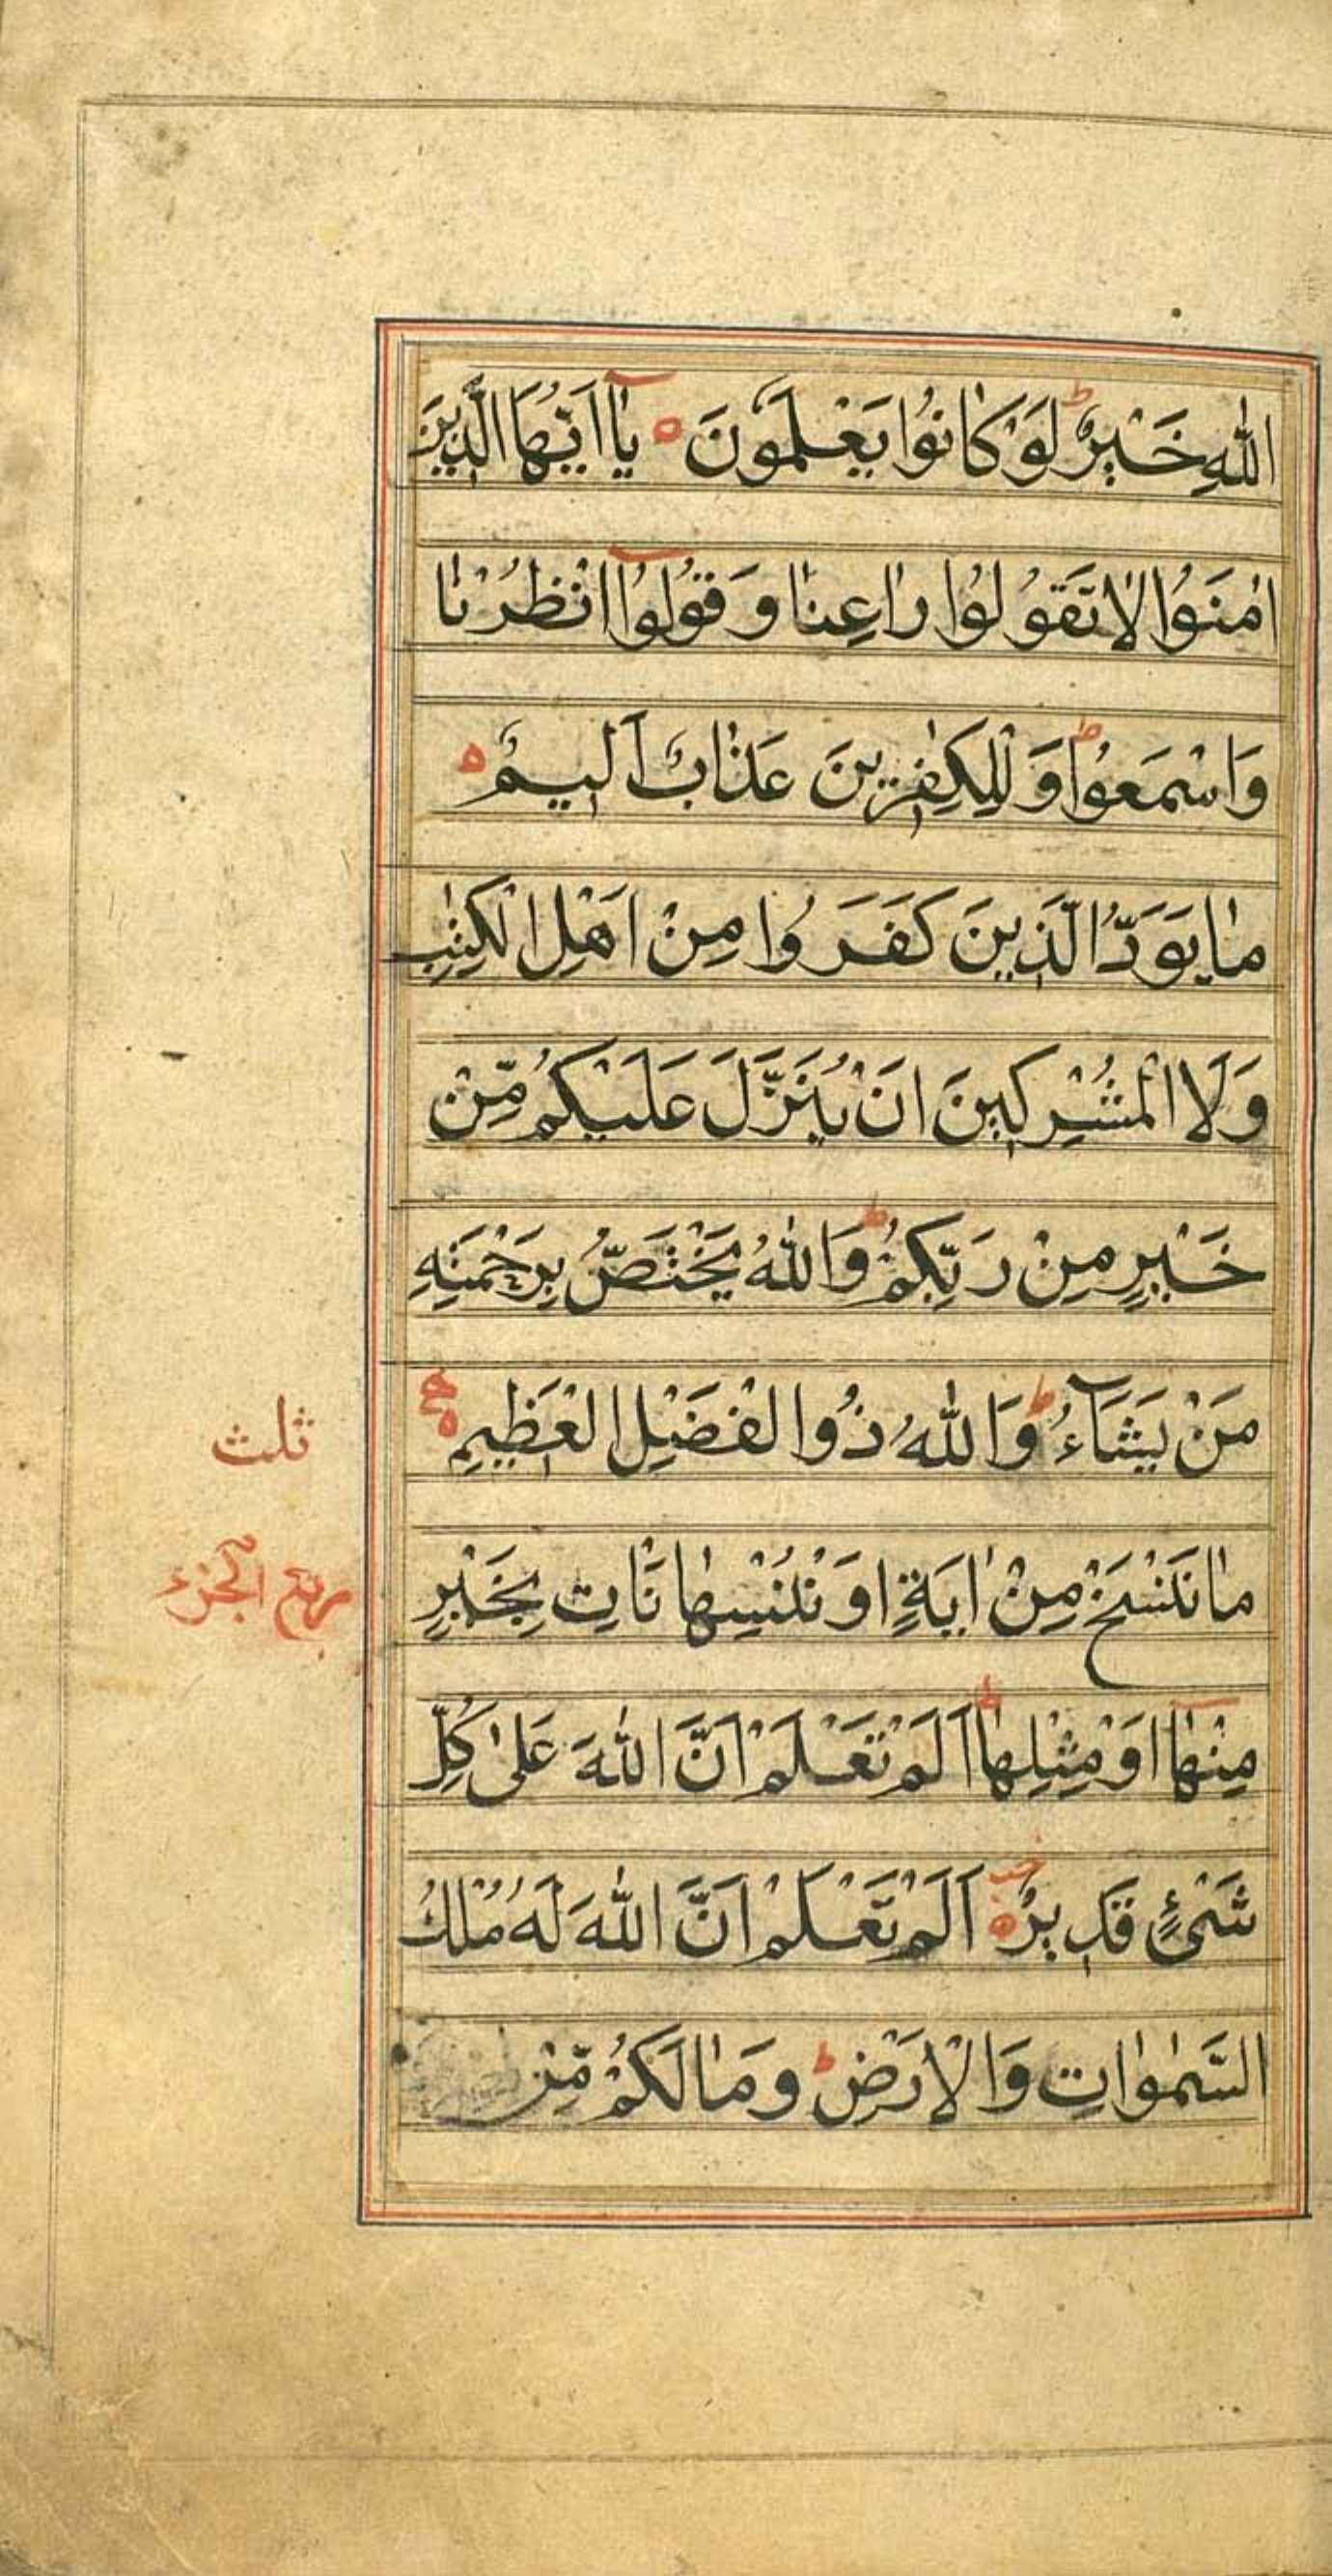 اللّٰهِ خَيْرٌ ط لَوْ كَانُوا يَعْلَمُونَ ه يٰٓا اَيُّهَا الَّذِينَ
اٰمَنُوا لٰا تَقُولُوا رٰاعِنٰا وَ قُولُوآ انْظُرْنٰا
وَاسْمَعُوا ط وَ لِلْكٰفِرِينَ عَذٰابٌ اَلِيمٌ ه
مٰا يَوَدُّ الَّذِينَ كَفَرُوا مِنْ اَهْلِ الْكِتٰبِ
وَلَا الْمُشْرِكِينَ اَنْ يُنَزَّلَ عَلَيْكُمْ مِّنْ
خَيْرٍ مِنْ رَبِّكُمْ ط وَاللّٰهُ يَخْتَصُّ بِرَحْمَتِهِ
مَنْ يَشَآءُ ط وَاللّٰهُ ذُوا لْفَضْلِ الْعَظِيمِ ه
ثلث
مٰا نَنْسَخْ مِنْ اٰيَةٍ اَوْ نُنْسِهٰا نَاْتِ بِخَيْرٍ
ربع الجزء
مِنْهٰآ اَوْ مِثْلِهٰا ط اَلَمْ تَعْلَمْ اَنَّ اللّٰهَ عَلىٰ كُلِّ
شَىْءٍ قَدِيرٌ ه اَلَمْ تَعْلَمْ اَنَّ اللّٰهَ لَهُ مُلْكُ
السَّمٰوٰاتِ وَالْاَرْضِ ط وَمٰا لَكُمْ مِّنْ